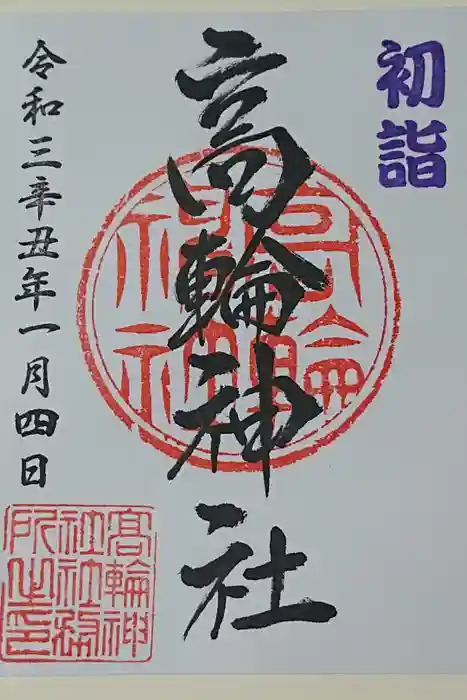 初詣
高輪神社
令和三辛丑年一月四日
高輪神社
高輪神
社社務
所之印